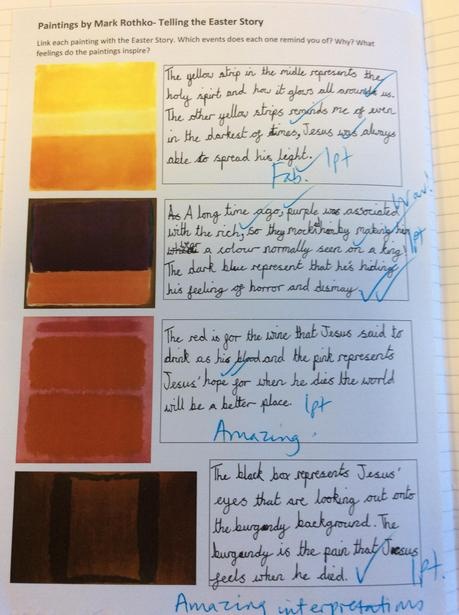 Paintings by Mark Rothko- Telling the Easter Story
Link each painting with the Easter Story. Which events does each one remind you of? Why? What
feelings do the paintings inspire?
The yellow strip in the midle represents the
holy spirt and how it glows all around us.
The other yellow strips reminds me of even
in the darkest of times, Jesus was always
able to spread his light.
Fab. 1pt
As A long time ago, purple was associated
with the rich, so they mock him by making him
wear a colour normally seen on a king!
The dark blue represent that he's hiding
his feeling of horror and dismay.
Wow!
1pt
The red is for the wine that Jesus said to
drink as his blood and the pink represents
Jesus' hope for when he dies the world
will be a better place. 1pt
Amazing.
The black box represents Jesus'
eyes that are looking out onto
the burgundy background. The
burgundy is the pain that Jesus
feels when he died. 1pt.
Amazing interpretations